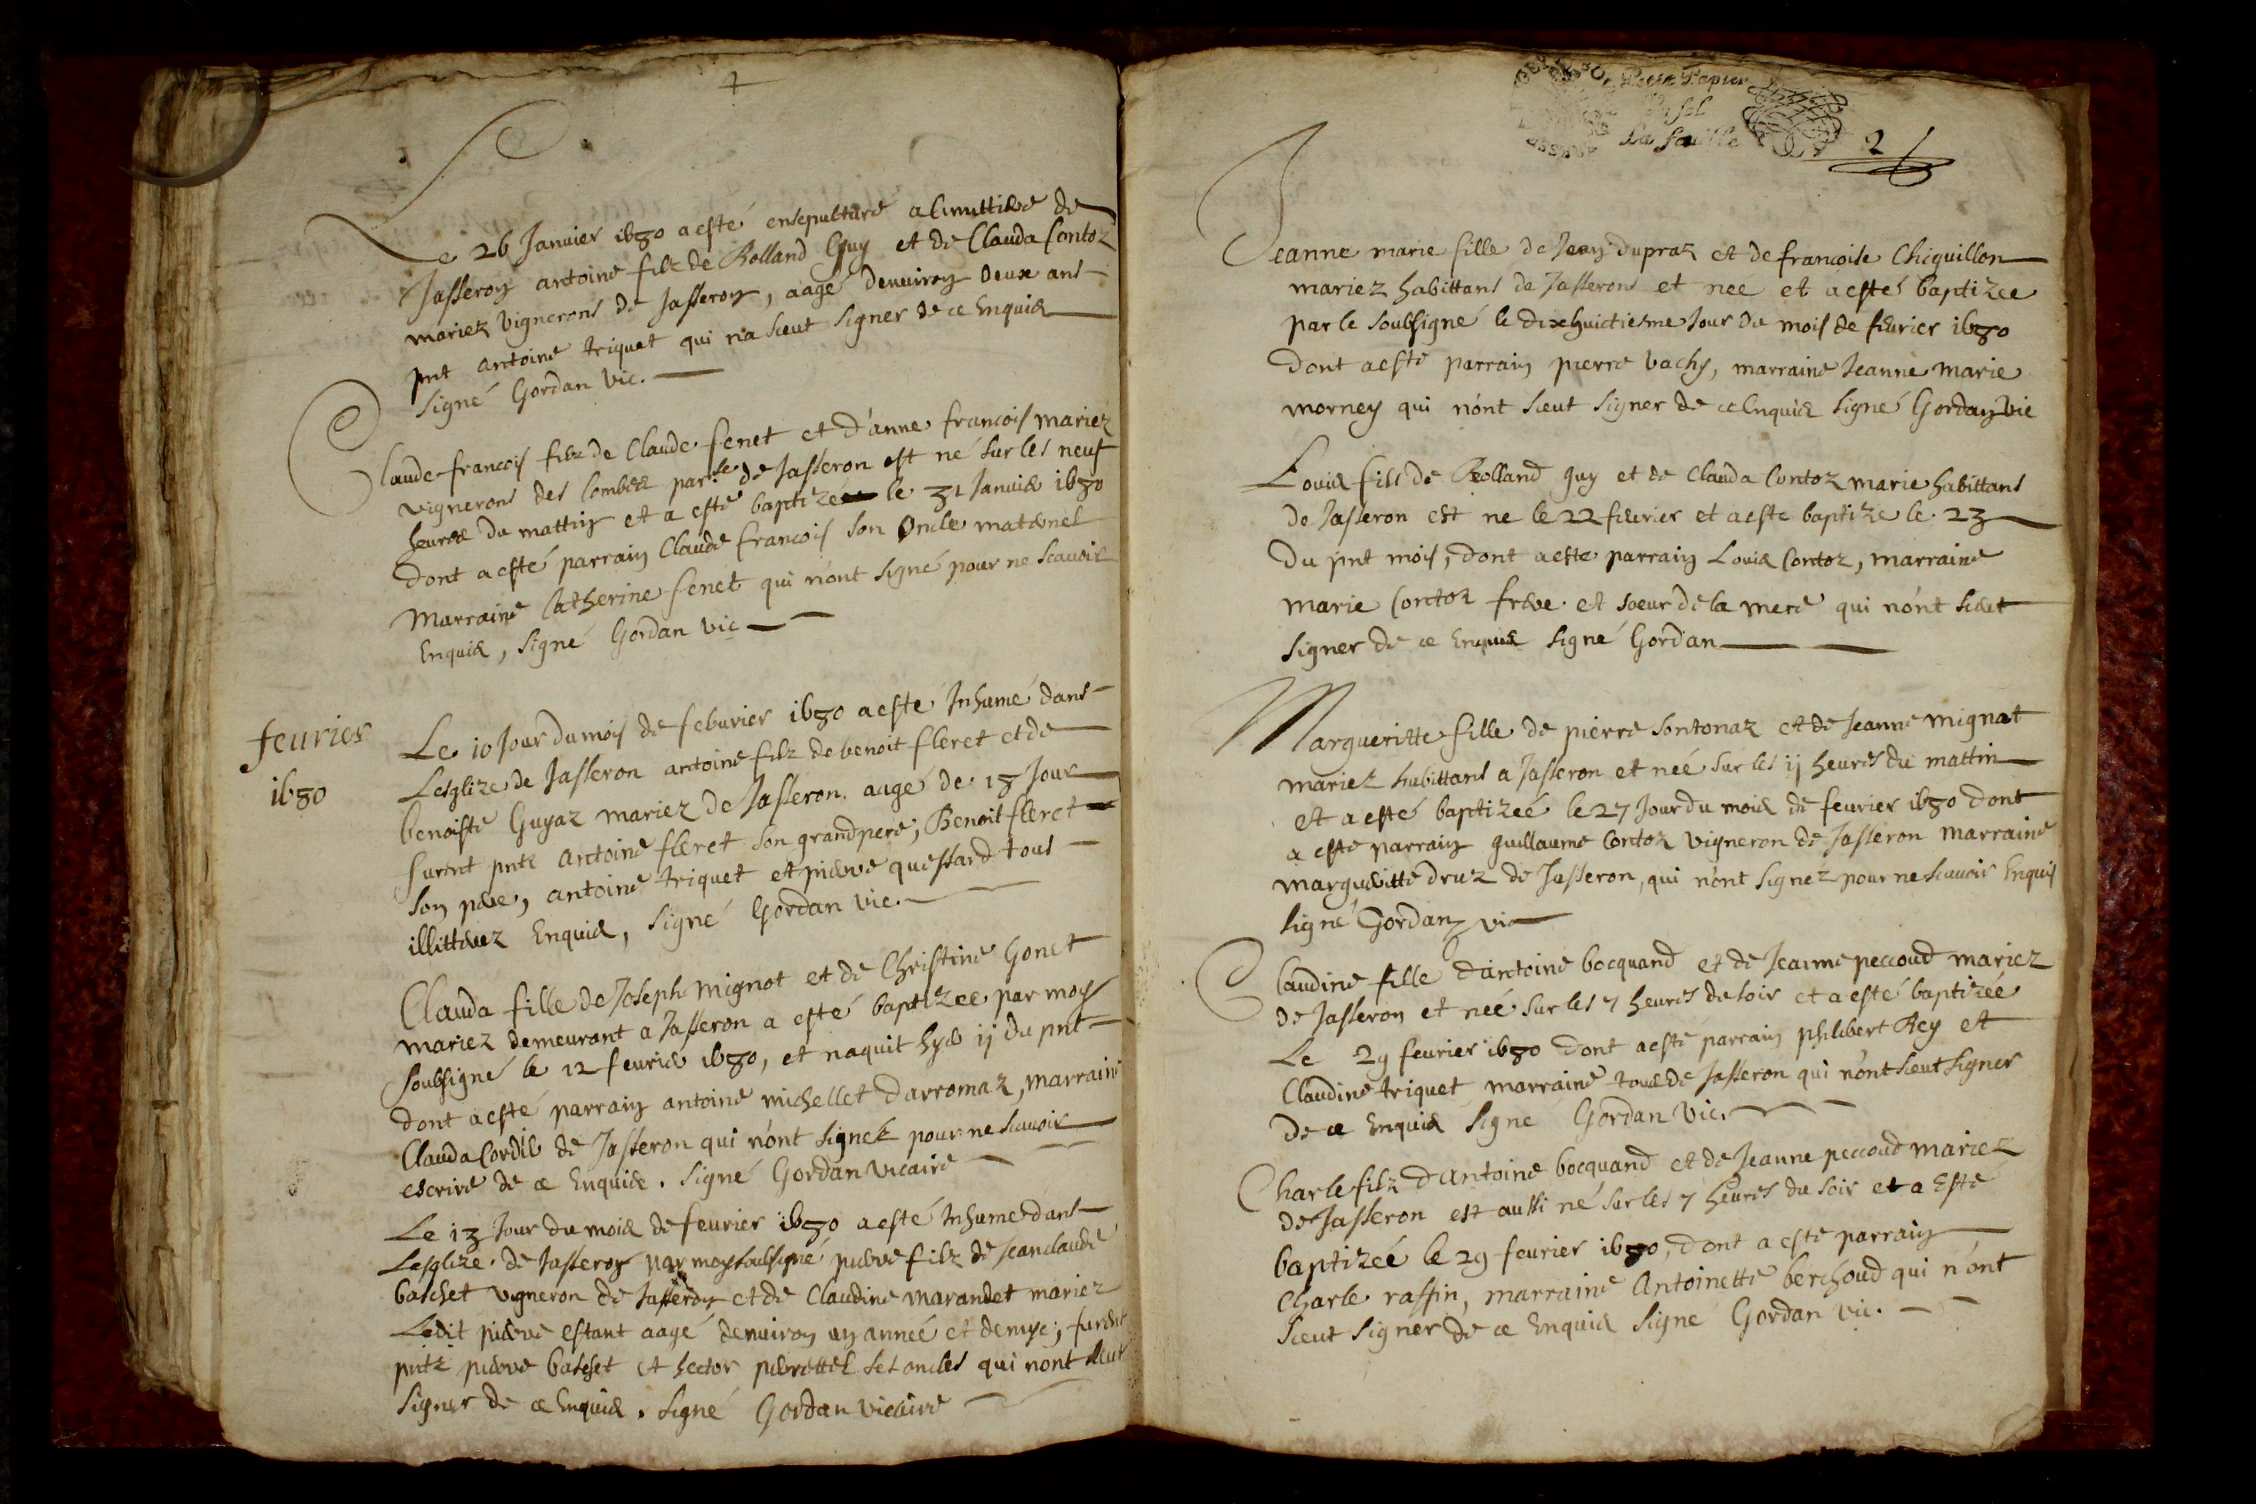 Le 26 Janvier 1680 a esté ensepulturé a Cimittiere de
Jasseron antoine filz de Rolland Guy et de Clauda Contoz
mariez vignerons de Jasseron, aagé denviron deux ans
pnt antoine triquet qui na sceut signer de ce Enquis
signé Gordan vic.
Claude francois filz de Claude fenet et d'anne francois mariez
vignerons des Combes par.sse de Jasseron est né sur les neuf
heures du mattin et a esté baptizé le 31 Janvier 1680
dont a esté parrain Claude francois son Oncle maternel
Marraine Catherine fenet qui n'ont signé pour ne scavoir
Enquis, signé Gordan vic
feurier
1680
Le 10 Jour du mois de feburier 1680 a esté Inhumé dans
Lesglize de Jasseron antoine filz de benoit fleret et de
benoiste Guyaz mariez de Jasseron. aagé de 18 Jours
furent pnts Antoine fleret son grand pere; Benoit fleret
son pere, antoine triquet et pierre quessard tous
illitterez Enquis, signé Gordan vic.
Clauda fille de Joseph Mignot et de Christine Gonet
mariez demeurant a Jasseron a esté baptizee par moy
soubsigné le 12 feurier 1680, et naquit hyer ij du pnt
dont a esté parrain antoine michellet darromaz, marraine
Clauda Cordil de Jasseron qui n'ont signez pour ne scavoir
escrire de ce Enquis. signé Gordan vicaire
Le 13 Jour du mois de feurier 1680 a esté Inhumé dans
Lesglize de Jasseron par moy soubsigné pierre filz de Jean claude
baschet vigneron de Jasseron et de Claudine marandet mariez
Ledit pierre estant aagé denviron un anneé et demye; furent
pnts pierre baschet et hector pierrettel ses oncles qui nont sceut
signer de ce Enquis. signé Gordan vicaire
Petit Papier
La feuille
2
Jeanne marie fille de Jean dupraz et de francoise Chiquillon
mariez habittans de Jasserons et nee et a esté baptizee
par le soubsigné le dixhuictiesme Jour du mois de feurier 1680
dont a esté parrain pierre vachy, marraine Jeanne Marie
morney qui n'ont sceut signer de ce Enquis signé Gordan vic
Louis fils de Rolland guy et de Clauda Contoz marie habittans
de Jasseron est ne le 22 feurier et a esté baptize le 23
du pnt mois, dont a esté parrain Louis Contoz, marraine
marie Contoz frere et soeur de la mere qui n'ont sceut
signer de ce Enquis signé Gordan
Margueritte fille de pierre sontonaz et de Jeanne mignat
mariez habittans a Jasseron et neé sur les ij heures du mattin
et a esté baptizeé le 27 Jour du mois de feurier 1680 dont
a esté parrain guillaume Contoz vigneron de Jasseron marraine
margueritte druz de Jasseron, qui n'ont signez pour ne scavoir Enquis
signé Gordan vic
Claudine fille d'antoine bocquand et de Jeanne peccoud mariez
de Jasseron et neé sur les 7 heures du soir et a esté baptizeé
Le 29 feurier 1680 dont a esté parrain philibert Rey et
Claudine triquet marraine tous de Jasseron qui n'ont sceut signer
de ce Enquis signé Gordan vic.
Charle filz d'antoine bocquand et de Jeanne peccoud mariez
de Jasseron est aussi né sur les 7 heures du soir et a Esté
baptizeé le 29 feurier 1680, dont a esté parrain
Charle raffin, marraine Antoinette berchoud qui n'ont
sceut signer de ce Enquis signé Gordan vic.